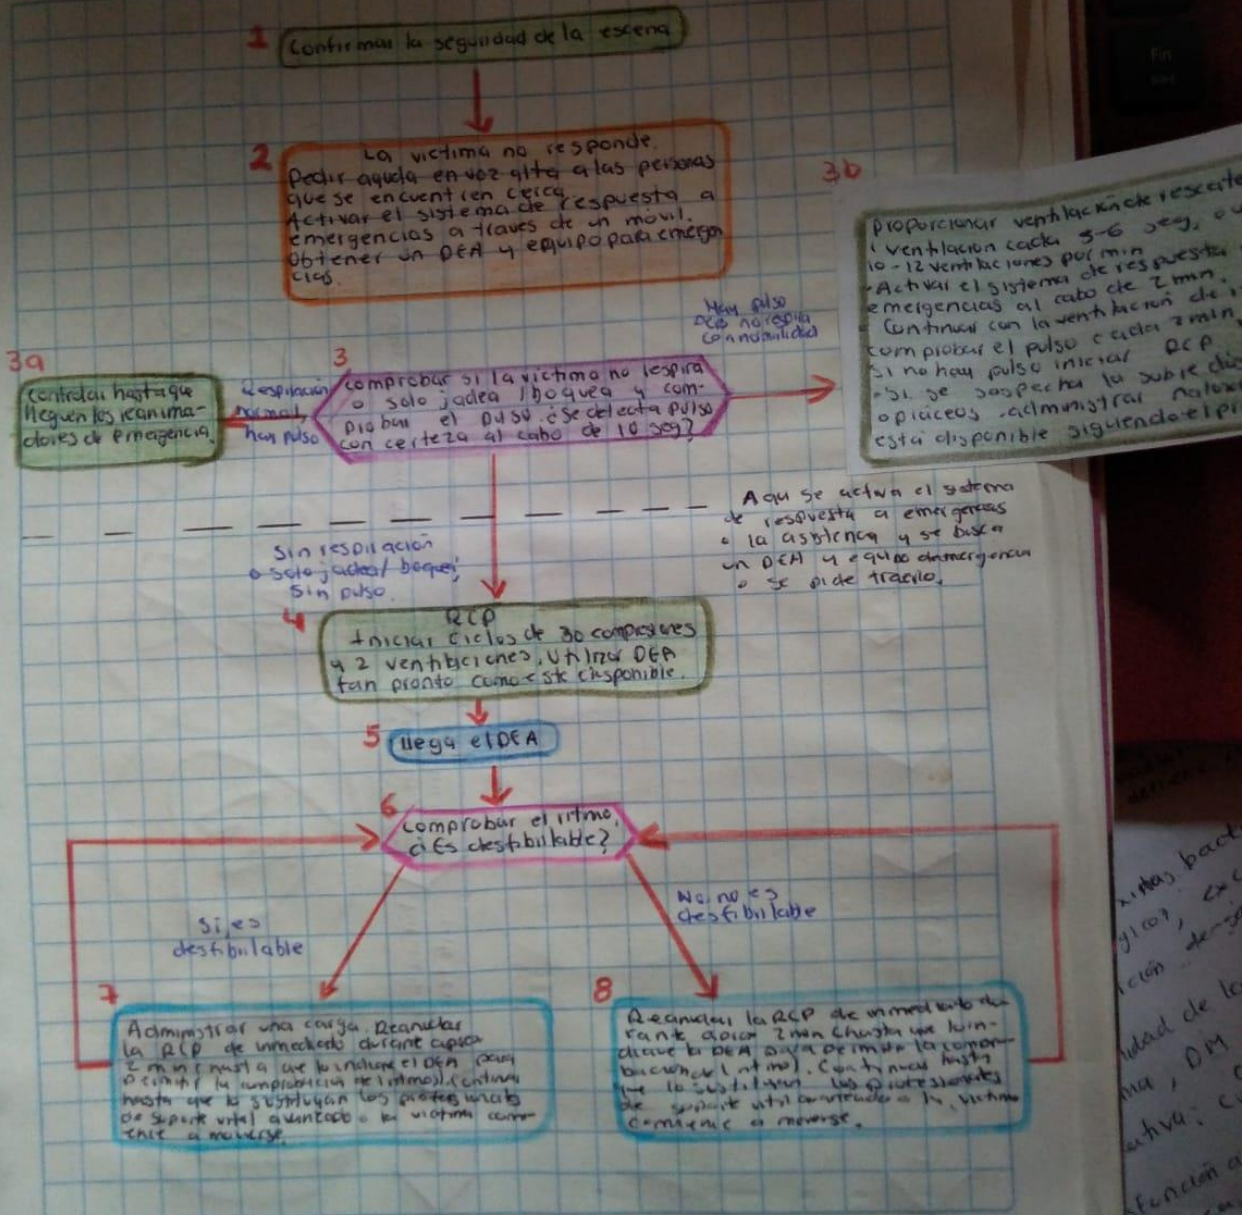 1
Confirmar la seguridad de la escena
2
La victima no responde.
Pedir ayuda en voz alta a las personas
que se encuentren cerca
Activar el sistema de respuesta a
emergencias a traves de un móvil.
Obtener un DEA y equipo para emergen
cias.
3b
proporcionar ventilación de rescate
1 ventilacion cada 5-6 seg, o
10-12 ventilaciones por min
-Activar el sistema de respuesta
emergencias al cabo de 2 min.
Continuar con la ventilación de
comprobar el pulso cada 2 min,
si no hay pulso iniciar RCP
-Si se sospecha la sobredosis
opiáceos administrar
está disponible siguiendo el
Hay pulso
pero no respira
con normalidad
3a
Controlar hasta que
lleguen los reanima-
dores de emergencia.
Respiración
normal,
hay pulso
3
comprobar si la víctima no respira
o solo jadea/boquea y com-
probar el pulso ¿Se detecta pulso
con certeza al cabo de 10 seg?
Aqui se activa el sistema
de respuesta a emergencias
o la asistencia y se busca
un DEA y equipo de emergencia
o se pide traerlo.
Sin respiración
o solo jadea/boquea;
sin pulso.
4
RCP
Iniciar ciclos de 30 compresiones
y 2 ventilaciones. Utilizar DEA
tan pronto como este disponible.
5
llega el DEA
6
Comprobar el ritmo,
¿Es desfibrilable?
Si, es
desfibrilable
No, no es
desfibrilable
7
Administrar una carga. Reanudar
la RCP de inmediato durante aprox
2 min (hasta que lo indique el DEA para
permitir la comprobacion del ritmo). Continuar
hasta que lo sustituyan los profesionales
de soporte vital avanzado o la victima comi-
ence a moverse.
8
Reanudar la RCP de inmediato du
rante aprox 2 min (hasta que lo in-
dique el DEA para permitir la compro
bacion del ritmo). Continuar hasta
que lo sustituyan los profesionales
de soporte vital avanzado o la victima
comience a moverse.
Fin